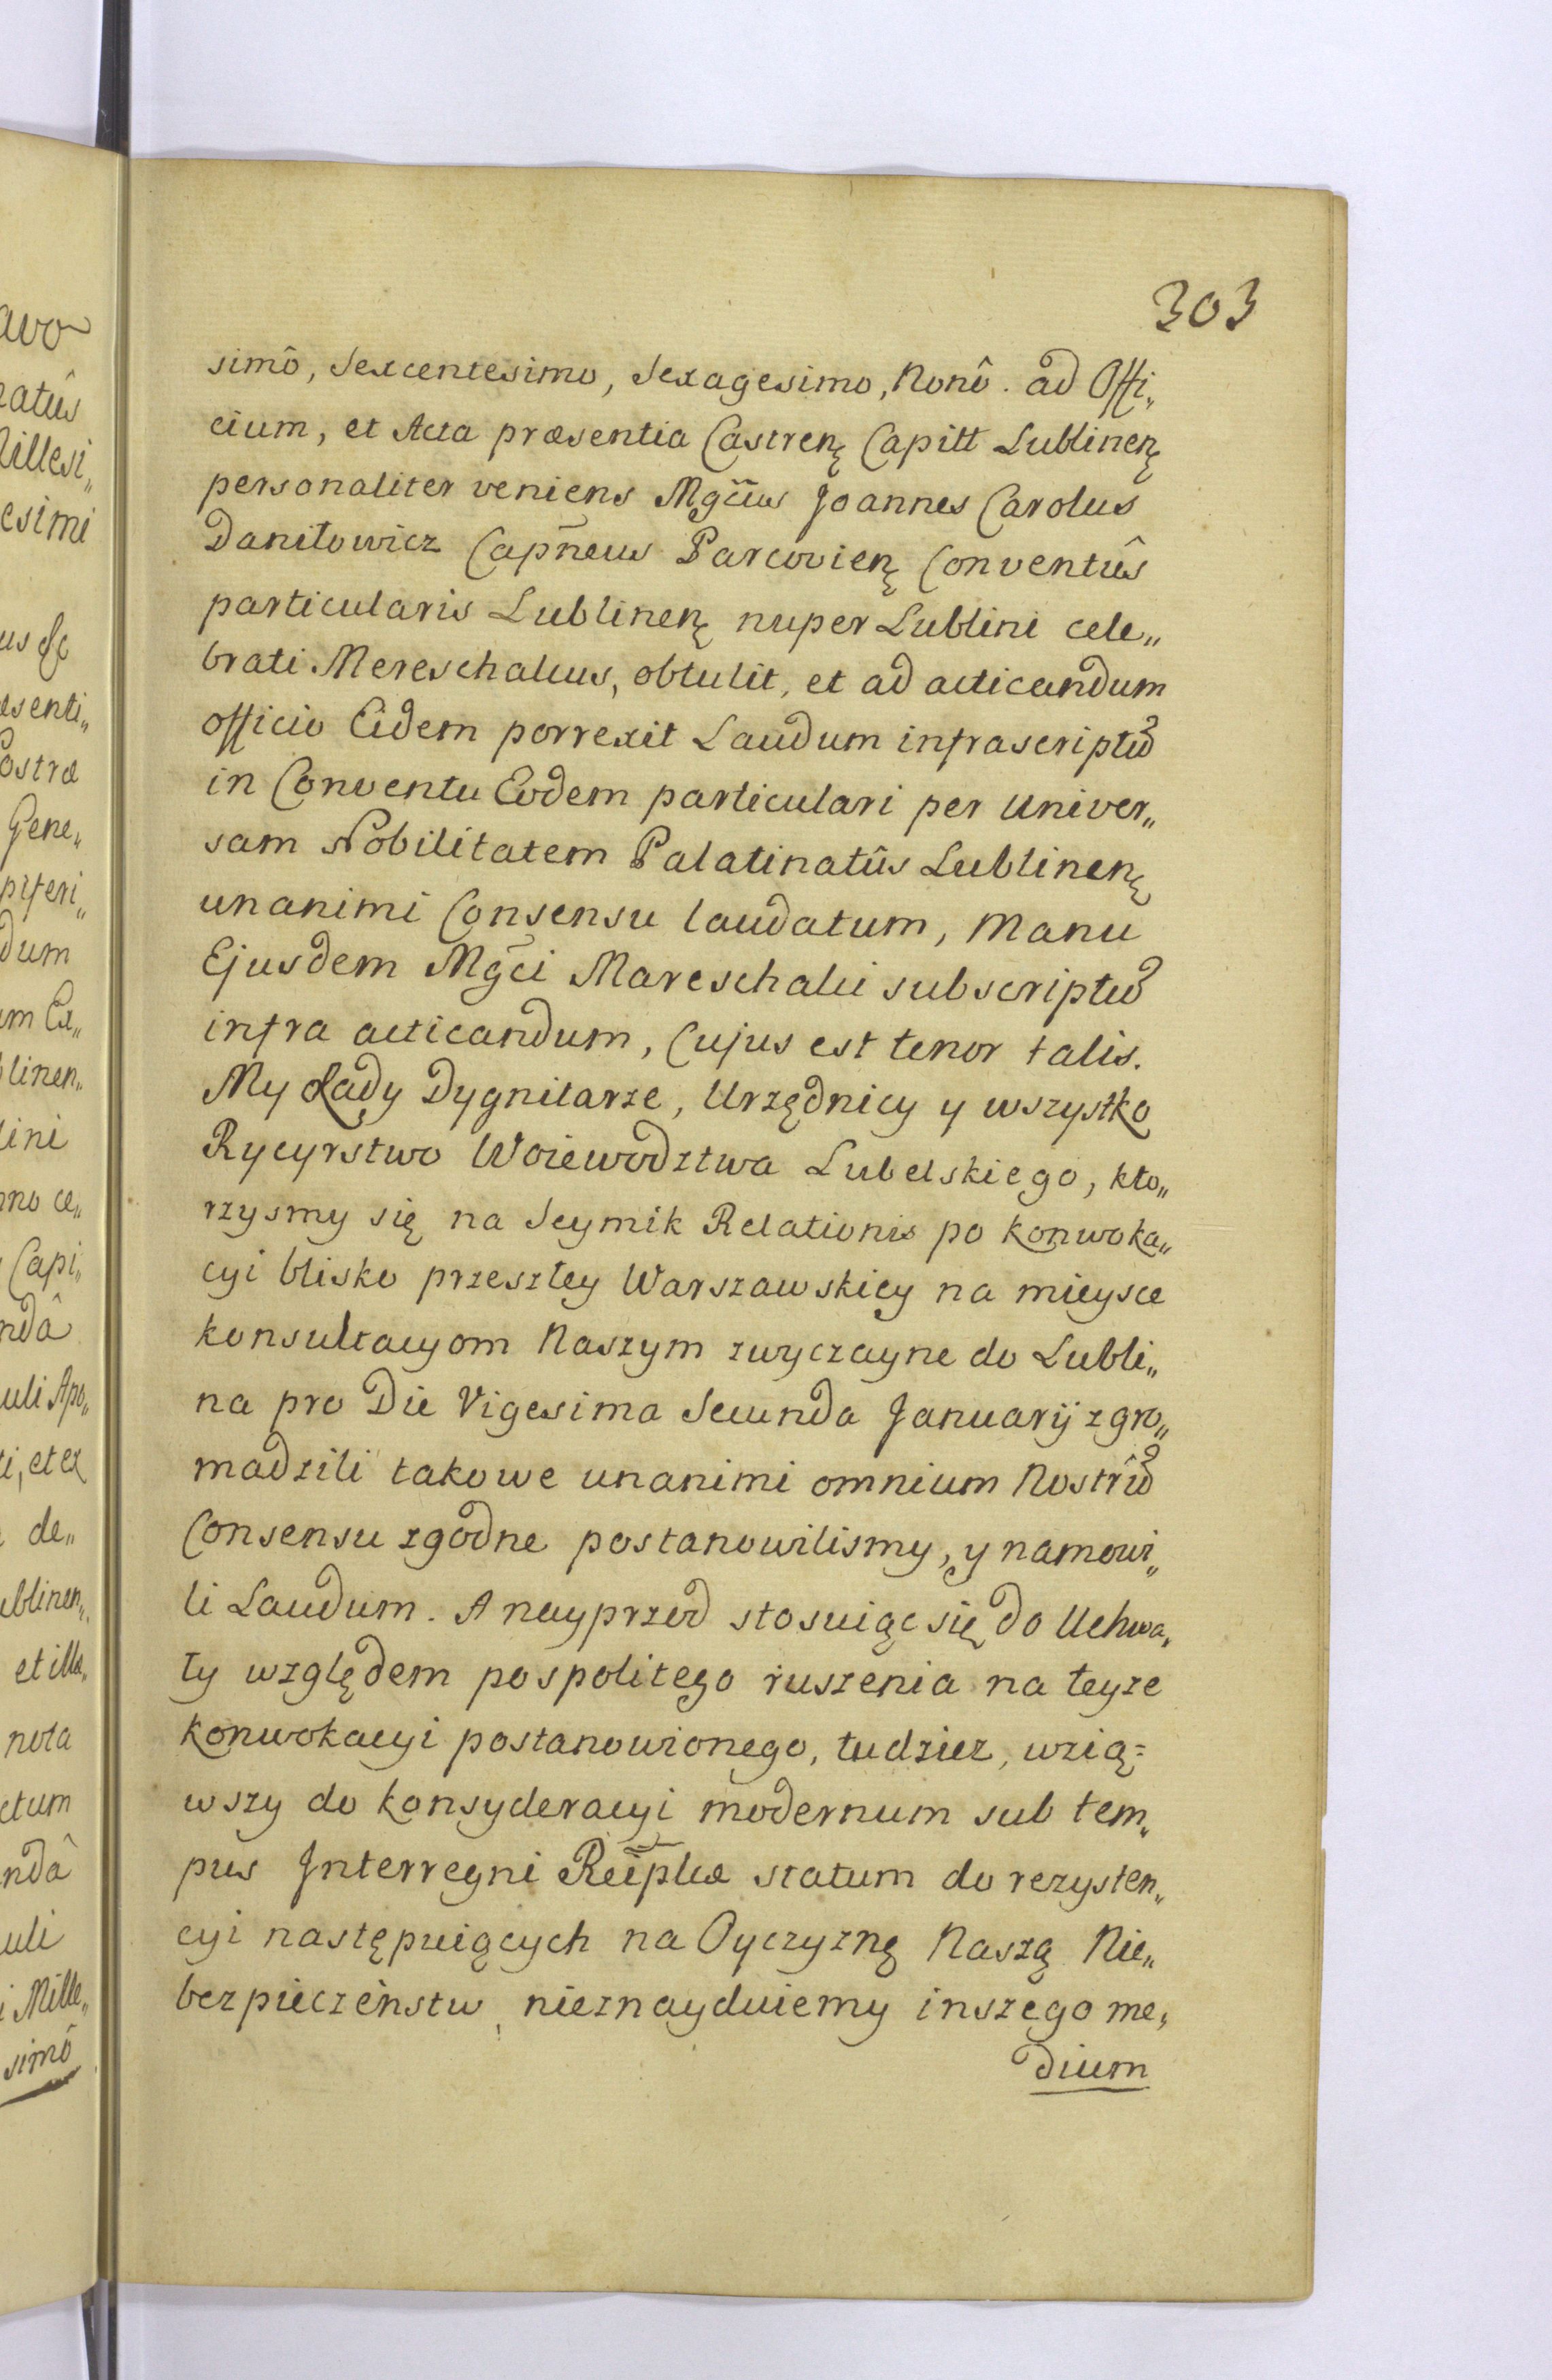 303
simô, Sexcentesimo, Sexagesimo, Nonô. ad Offi„
cium, et Acta præsentia Castrenę Capitt Lublinenę
personaliter veniens Mgc̃us Joannes Carolus
Daniłowicz Capñeus Parcovienę Conventûs
particularis Lublinenę nuper Lublini cele„
brati Mereschalcus, obtulit, et ad acticandum
officio Eidem porrexit Laudum infrascriptũ
in Conventu Eodem particulari per Univer„
sam Nobilitatem Palatinatûs Lublinenę
unanimi Consensu laudatum, Manu
Ejusdem Mgc̃i Mareschalci subscriptũ
infra acticandum, Cujus est tenor talis.
My Rady Dygnitarze, Urzędnicy y wszystko
Rycyrstwo Woiewodztwa Lubelskiego, kto„
rzysmy się na Seymik Relationis po konwoka„
cyi blisko przeszłey Warszawskiey na mieysce
konsultacyom Naszym zwyczayne do Lubli„
na pro Die Vigesima Secunda Januarij zgro„
madzili takowe unanimi omnium Nostrũ
Consensu zgodne postanowilismy, y namowi„
li Laudum. A nayprzod stosuiąc się do Uchwa„
ły względem pospolitego ruszenia na teyze
konwokacyi postanowionego, tudziez, wzią=
wszy do konsyderacyi modernum sub tem„
pus Interregni Reip̃lcæ statum do rezysten„
cyi następuiących na Oyczyznę Naszą Nie„
bezpieczeństw, nieznayduiemy inszego me„
dium